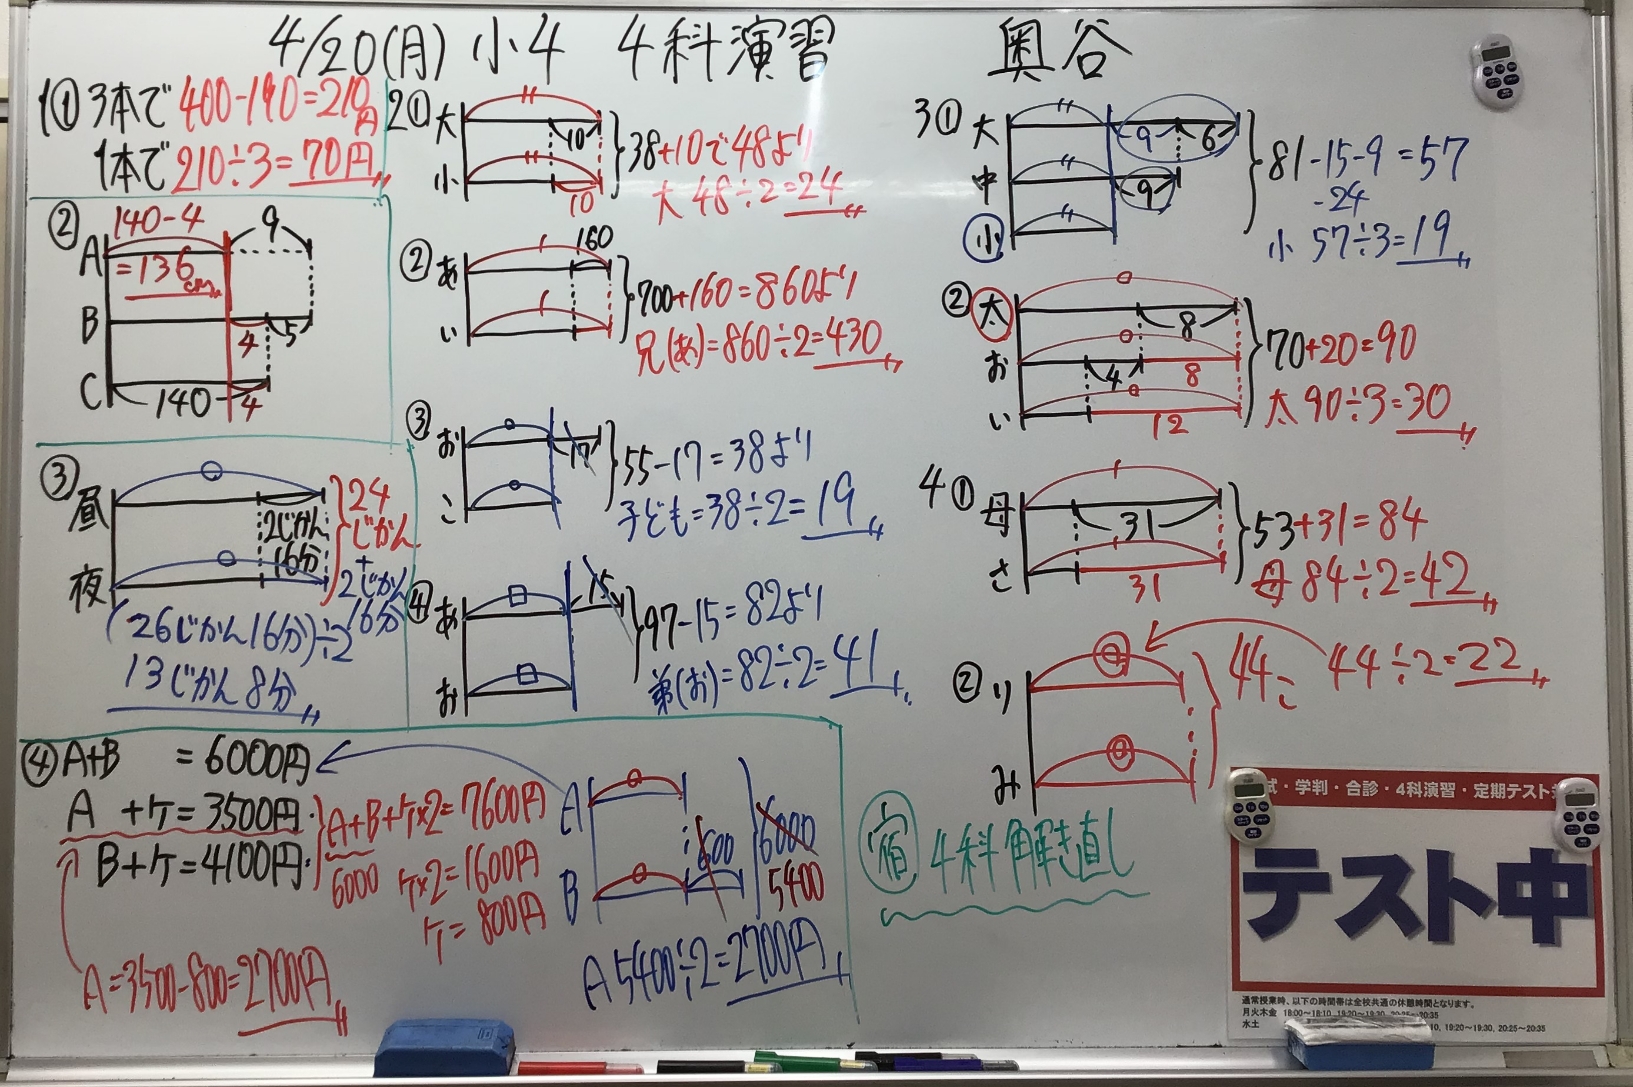 4/20(月) 小4 4科演習 奥谷
1① 3本で 400-190=210円
1本で 210÷3=70円
② 140-4
9
A =136cm
B 4 5
C 140 4
③ 昼 2じかん16分
夜
24じかん+2じかん16分
(26じかん16分)÷2
13じかん8分
④ A+B =6000円
A +ケ=3500円
B+ケ=4100円
A+B+ケ×2=7600円
6000 ケ×2=1600円
ケ=800円
A=3500-800=2700円
A
B 600
6000
5400
A 5400÷2=2700円
2① 大 10
小 10
38+10で48より
大 48÷2=24
② あ 160
い
700+160=860より
兄(あ)=860÷2=430
③ お 17
こ
55-17=38より
子ども=38÷2=19
④ あ 15
お
97-15=82より
弟(お)=82÷2=41
3① 大 9 6
中 9
小
81-15-9=57
-24
小 57÷3=19
② 太 8
お 4 8
い 12
70+20=90
太 90÷3=30
4① 母 31
さ 31
53+31=84
母 84÷2=42
② り
み
44こ 44÷2=22
宿 4科解き直し
試・学判・合診・4科演習・定期テスト
テスト中
通常授業時、以下の時間帯は全校共通の休憩時間となります。
月火木金 18:00～18:10、19:20～19:30、20:25～20:35
水土 10、19:20～19:30、20:25～20:35